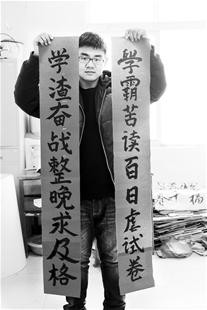 学霸苦读百日虐试卷
学渣奋战整晚求及格